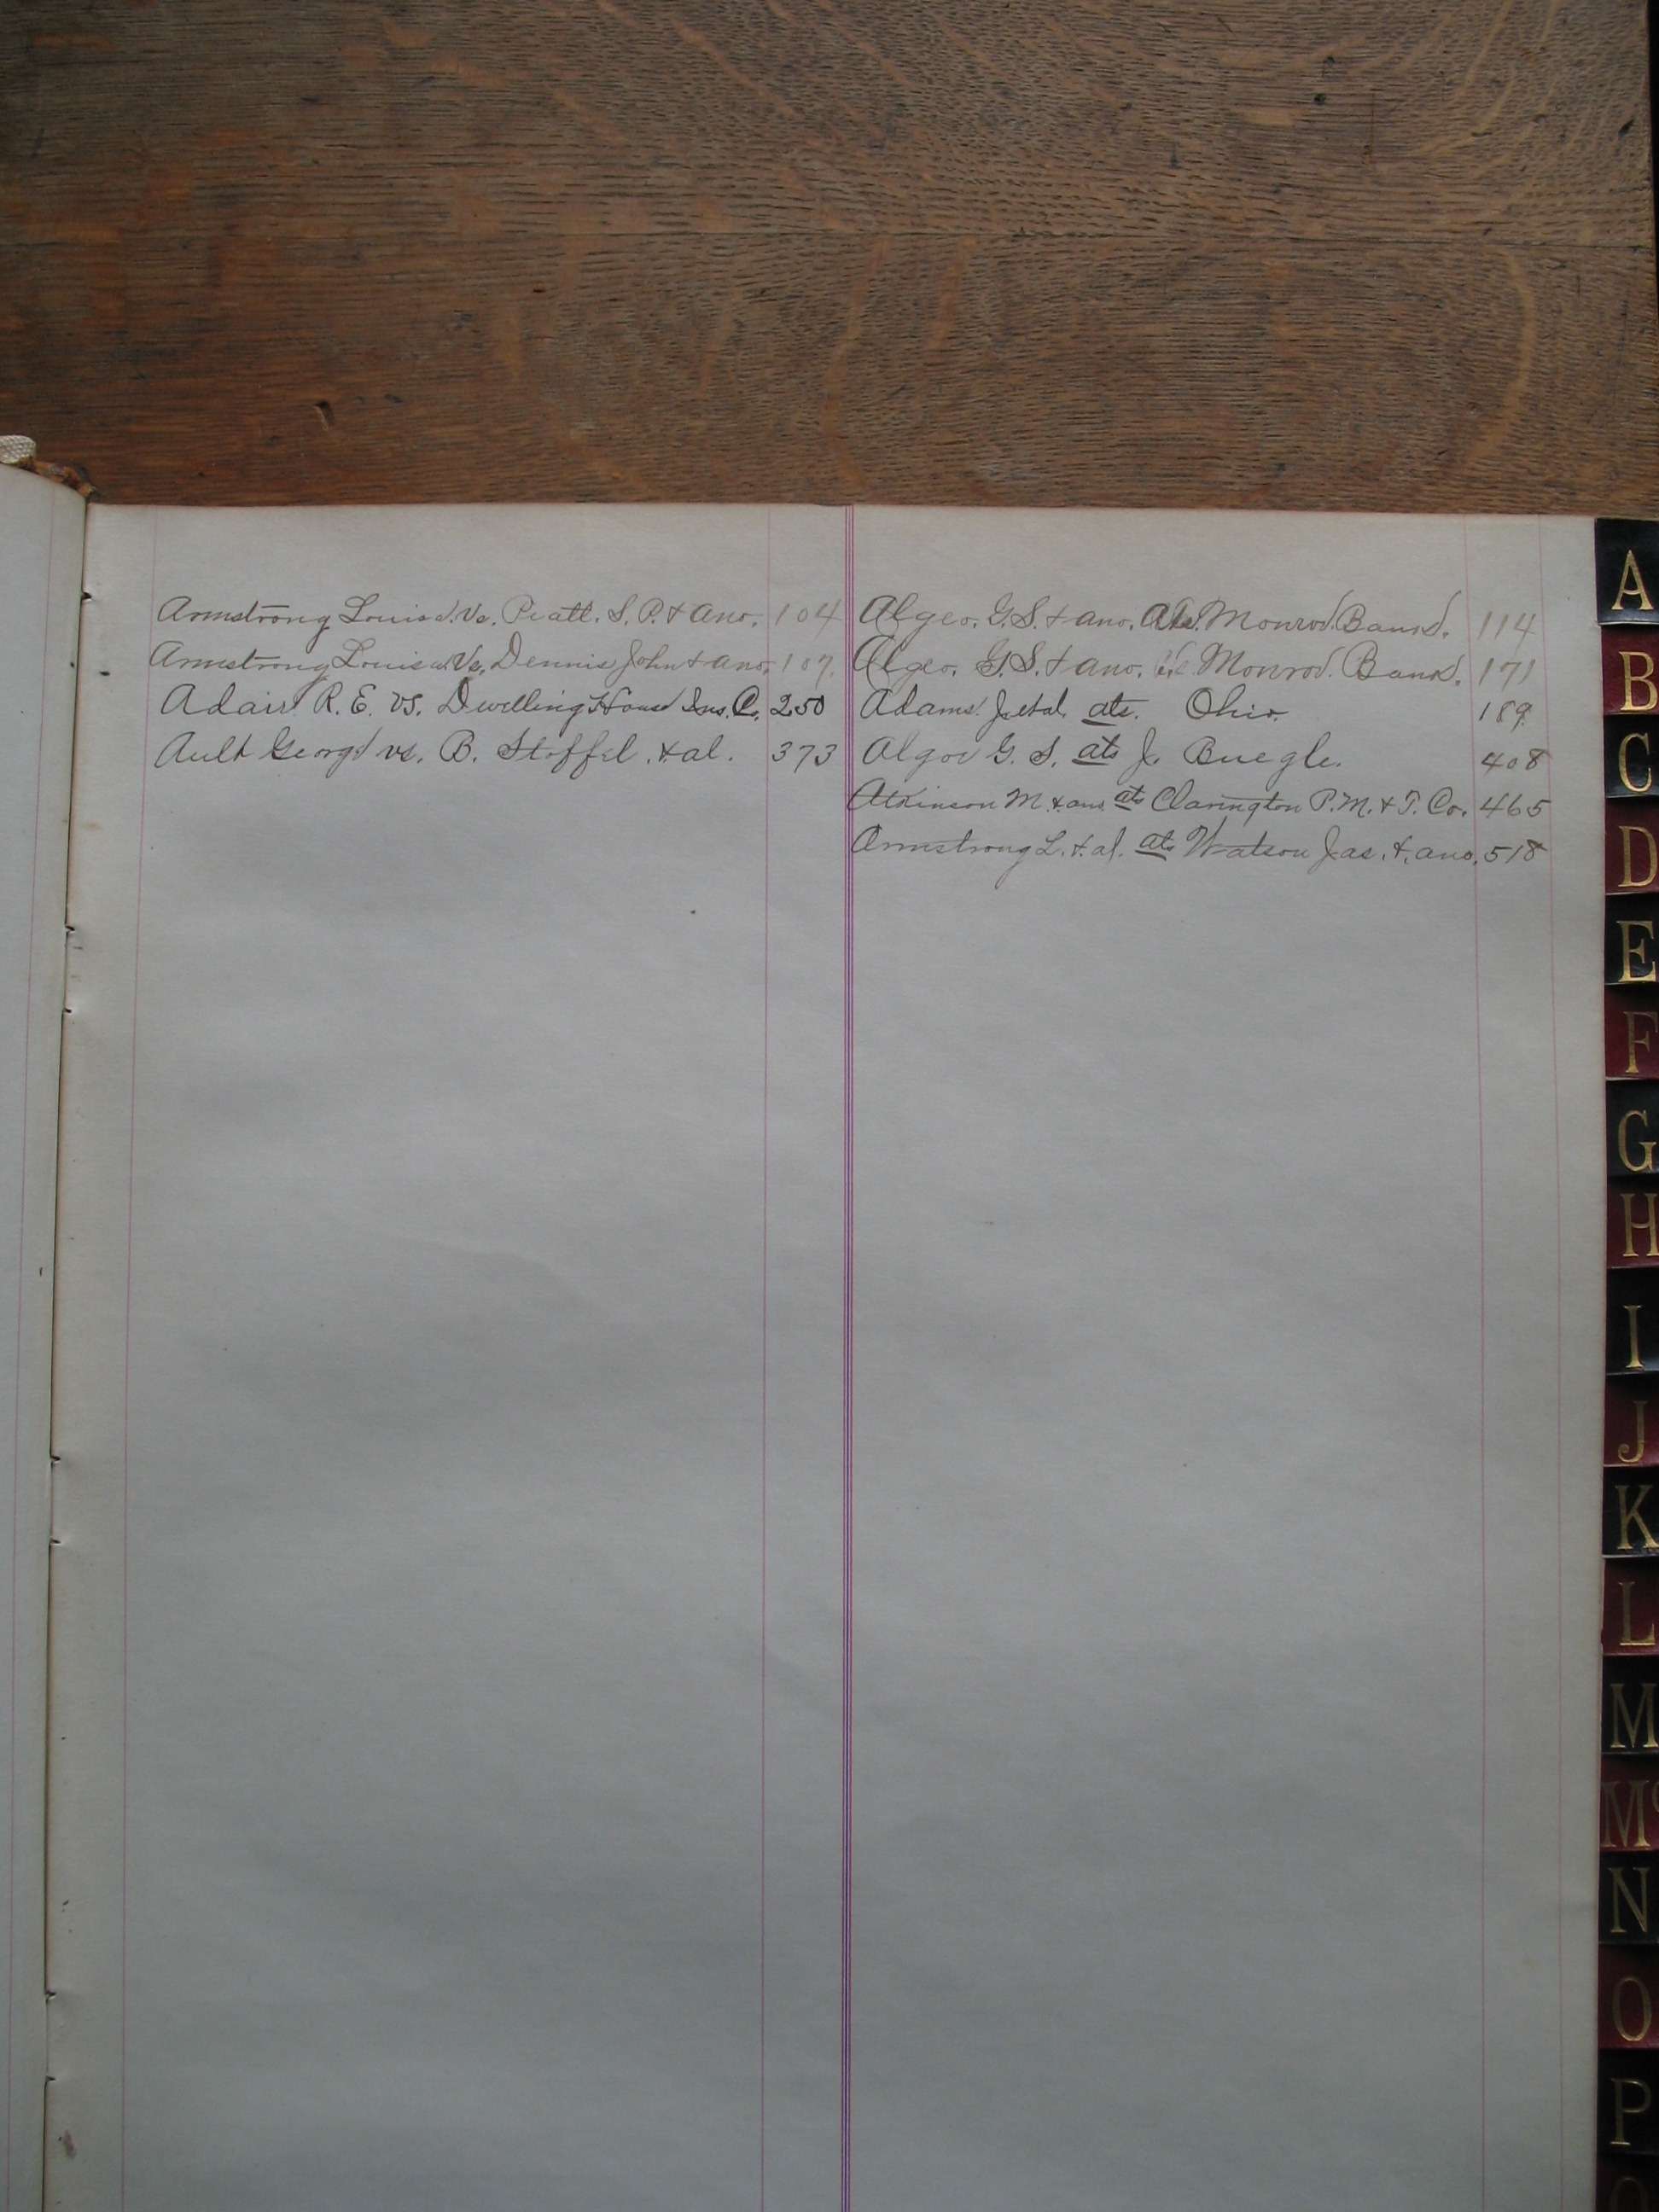 Armstrong Louisa Vs. Peatt. S. P. & Ano. 104
Armstrong Louisa Vs. Dennis John & Ano. 107.
Adair R. E. vs. Dwelling House Ins. C. 250
Ault George vs. B. Stoffel. & al. 373
Algeo. G. S. & ano. Ats. Monroe Bank. 114
Algeo. G. S. & ano. Monroe Bank. 171
Adams J. et al. ats. Ohio. 189.
Algoe G. S. ats J. Buegle. 408
Atkinson M. & ano. ats Clarington P. M. & T. Co. 465
Armstrong L. & al. ats Watson Jas. & ano. 518
A
B
C
D
E
F
G
H
I
J
K
L
M
Mc
N
O
P